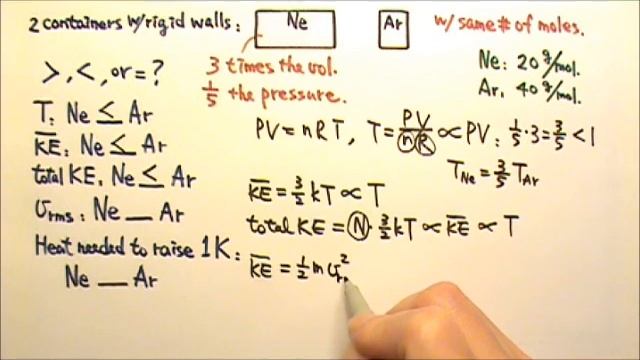 2 containers w/rigid walls: Ne Ar w/ same # of moles.
3 times the vol.
1/5 the pressure.
Ne: 20 g/mol.
Ar: 40 g/mol.
>, <, or = ?
T: Ne < Ar
K̅E̅: Ne < Ar
total KE: Ne < Ar
υrms: Ne __ Ar
Heat needed to raise 1K:
Ne __ Ar
PV = nRT, T = PV/nR ∝ PV: 1/5 · 3 = 3/5 < 1
T_Ne = 3/5 T_Ar
K̅E̅ = 3/2 kT ∝ T
total KE = N · 3/2 kT ∝ K̅E̅ ∝ T
K̅E̅ = 1/2 m υ²